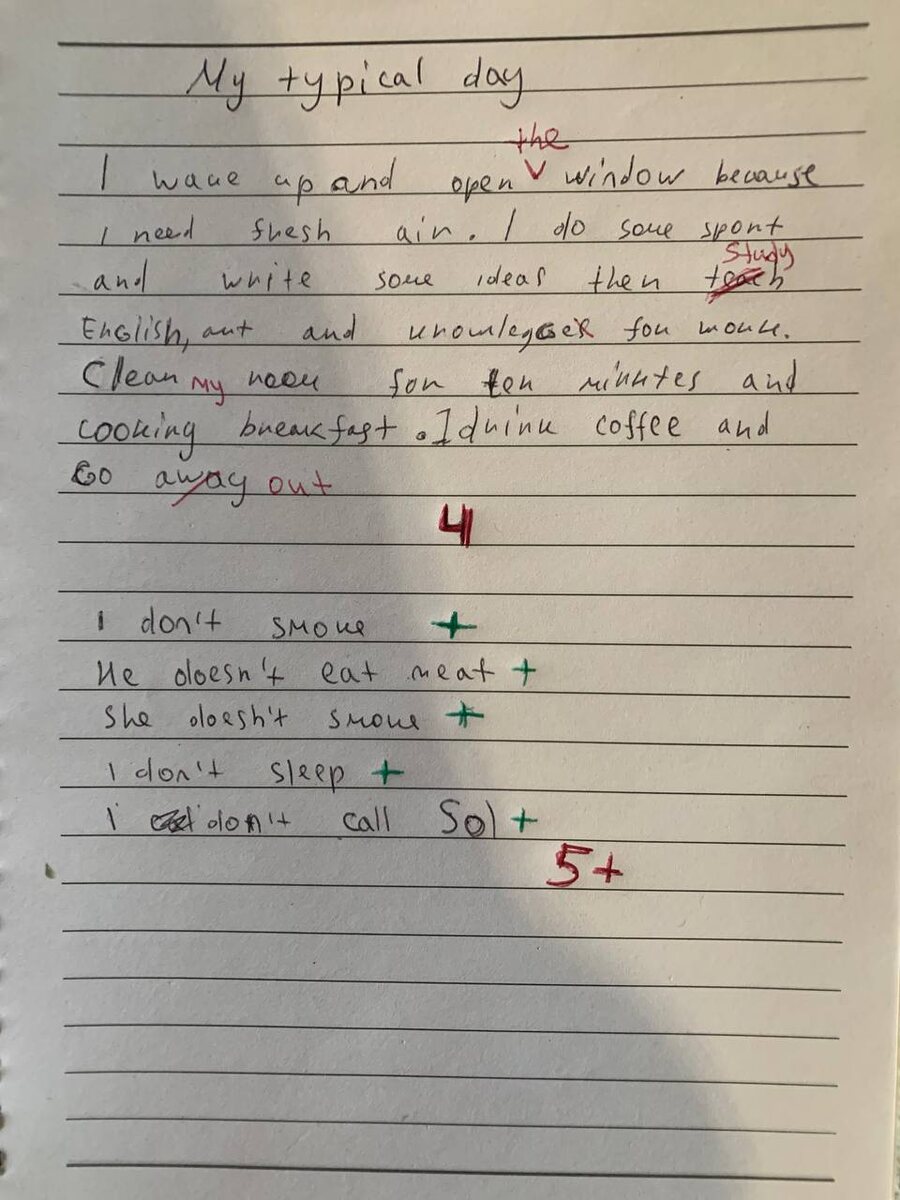 My typical day
the
I wake up and open V window because
I need fresh air. I do some sport
Study
and write some ideas then teach
English, art and knowledges for work.
Clean My room for ten minutes and
cooking breakfast. I drink coffee and
Go away out
4
I don't smoke +
He doesn't eat meat +
She doesn't smoke +
I don't sleep +
I don't call Sol +
5+